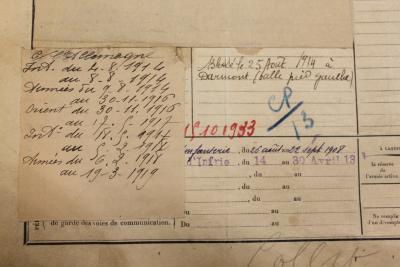 C. Allemagne
Int. du 4.8.1914
au 8-8-1914
Armées du 9.8.1914
au 30-11-1916
Orient du 30-11-1916
au 17-5-1917
Int. du 18.5.1917
au 5.2.1918
Armées du 6.2.1918
au 19-3-1919
Blessé le 25 Août 1914 à
Darmont (balle pied gauche)
CP
13
15101933
Infanterie, du 26 août au 22 sept 1908
d'Infrie, du 14 au 30 Avril 13
, du au
, du au
Du au
de garde des voies de communication.)
la réserve
de l'armée active.
Ne compte